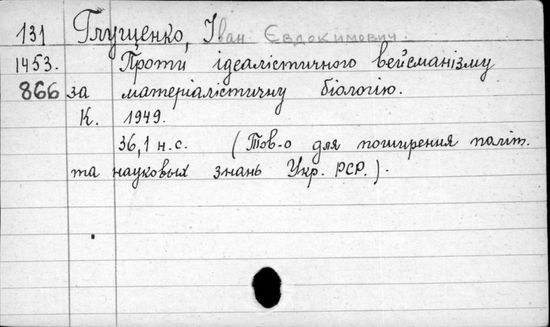 131 Глущенко, Іван Євдокимович.
1453. Проти ідеалістичного вейсманізму
866 за матеріалістичну біологію.
К. 1949.
36,1 н.с. (Тов-о для поширення політ.
та наукових знань Укр. РСР.).